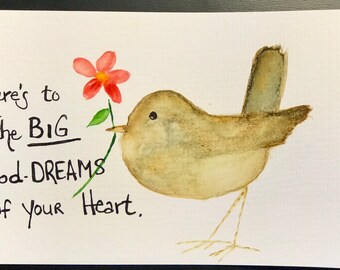 ere's to
the BIG
od-DREAMS
of your Heart.